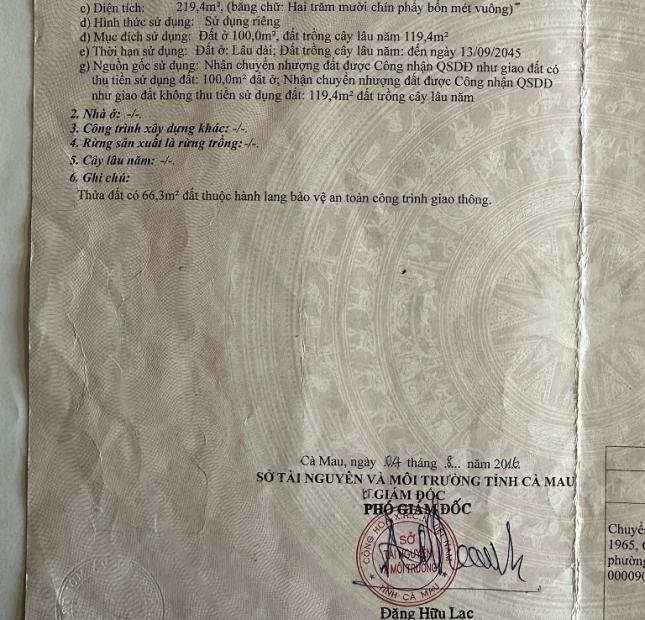 c) Diện tích: 219,4m², (bằng chữ: Hai trăm mười chín phẩy bốn mét vuông)
d) Hình thức sử dụng: Sử dụng riêng
đ) Mục đích sử dụng: Đất ở 100,0m², đất trồng cây lâu năm 119,4m²
e) Thời hạn sử dụng: Đất ở: Lâu dài; Đất trồng cây lâu năm: đến ngày 13/09/2045
g) Nguồn gốc sử dụng: Nhận chuyển nhượng đất được Công nhận QSDĐ như giao đất có
thu tiền sử dụng đất: 100,0m² đất ở; Nhận chuyển nhượng đất được Công nhận QSDĐ
như giao đất không thu tiền sử dụng đất: 119,4m² đất trồng cây lâu năm
2. Nhà ở: -/-.
3. Công trình xây dựng khác: -/-.
4. Rừng sản xuất là rừng trồng: -/-.
5. Cây lâu năm: -/-.
6. Ghi chú:
Thửa đất có 66,3m² đất thuộc hành lang bảo vệ an toàn công trình giao thông.
Cà Mau, ngày 04 tháng 8 năm 2016
SỞ TÀI NGUYÊN VÀ MÔI TRƯỜNG TỈNH CÀ MAU
KT.GIÁM ĐỐC
PHÓ GIÁM ĐỐC
SỞ
TÀI NGUYÊN
VÀ MÔI TRƯỜNG
TỈNH CÀ MAU
Đặng Hữu Lạc
Chuyể
1965,
phường
00009